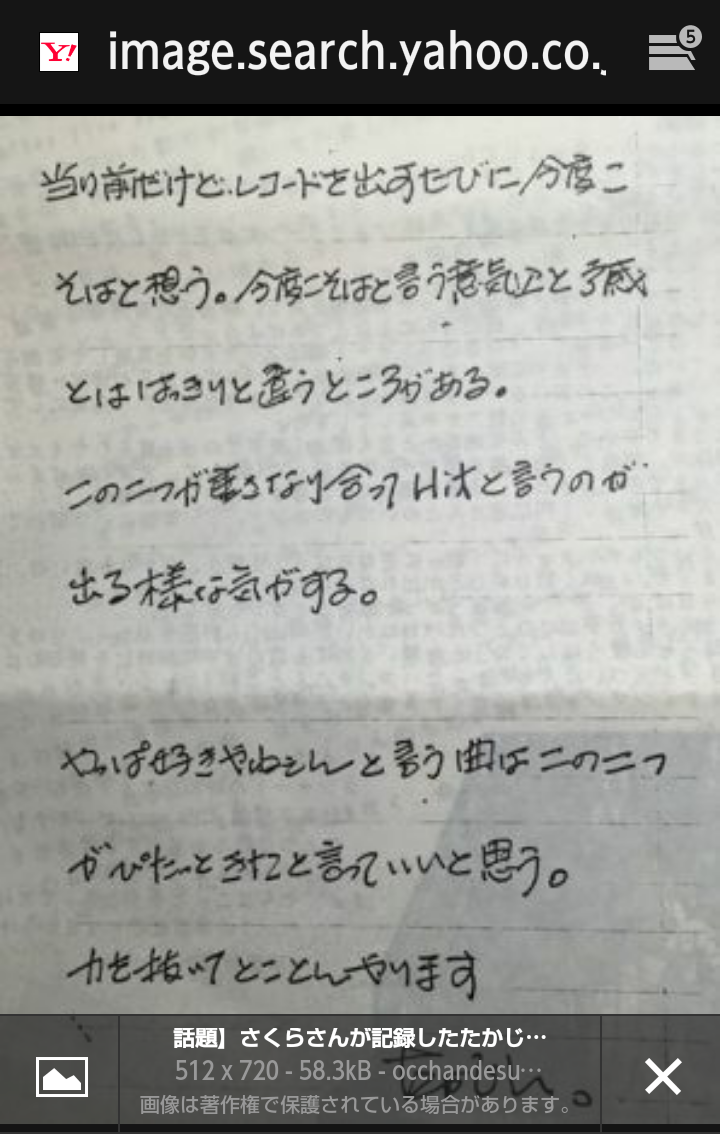 image.search.yahoo.co.
5
当り前だけど、レコードを出すたびに今度こ
そはと想う。今度こそはと言う意気込と予感
とははっきりと違うところがある。
この二つが重さなり合ってH沈と言うのが
出る様な気がする。
やっぱ好きやねんと言う曲はこの二つ
がぴたっときたと言っていいと思う。
力を抜いてとことんやります
話題】さくらさんが記録したたかじ…
512 x 720 - 58.3kB - occhandesu…
画像は著作権で保護されている場合があります。